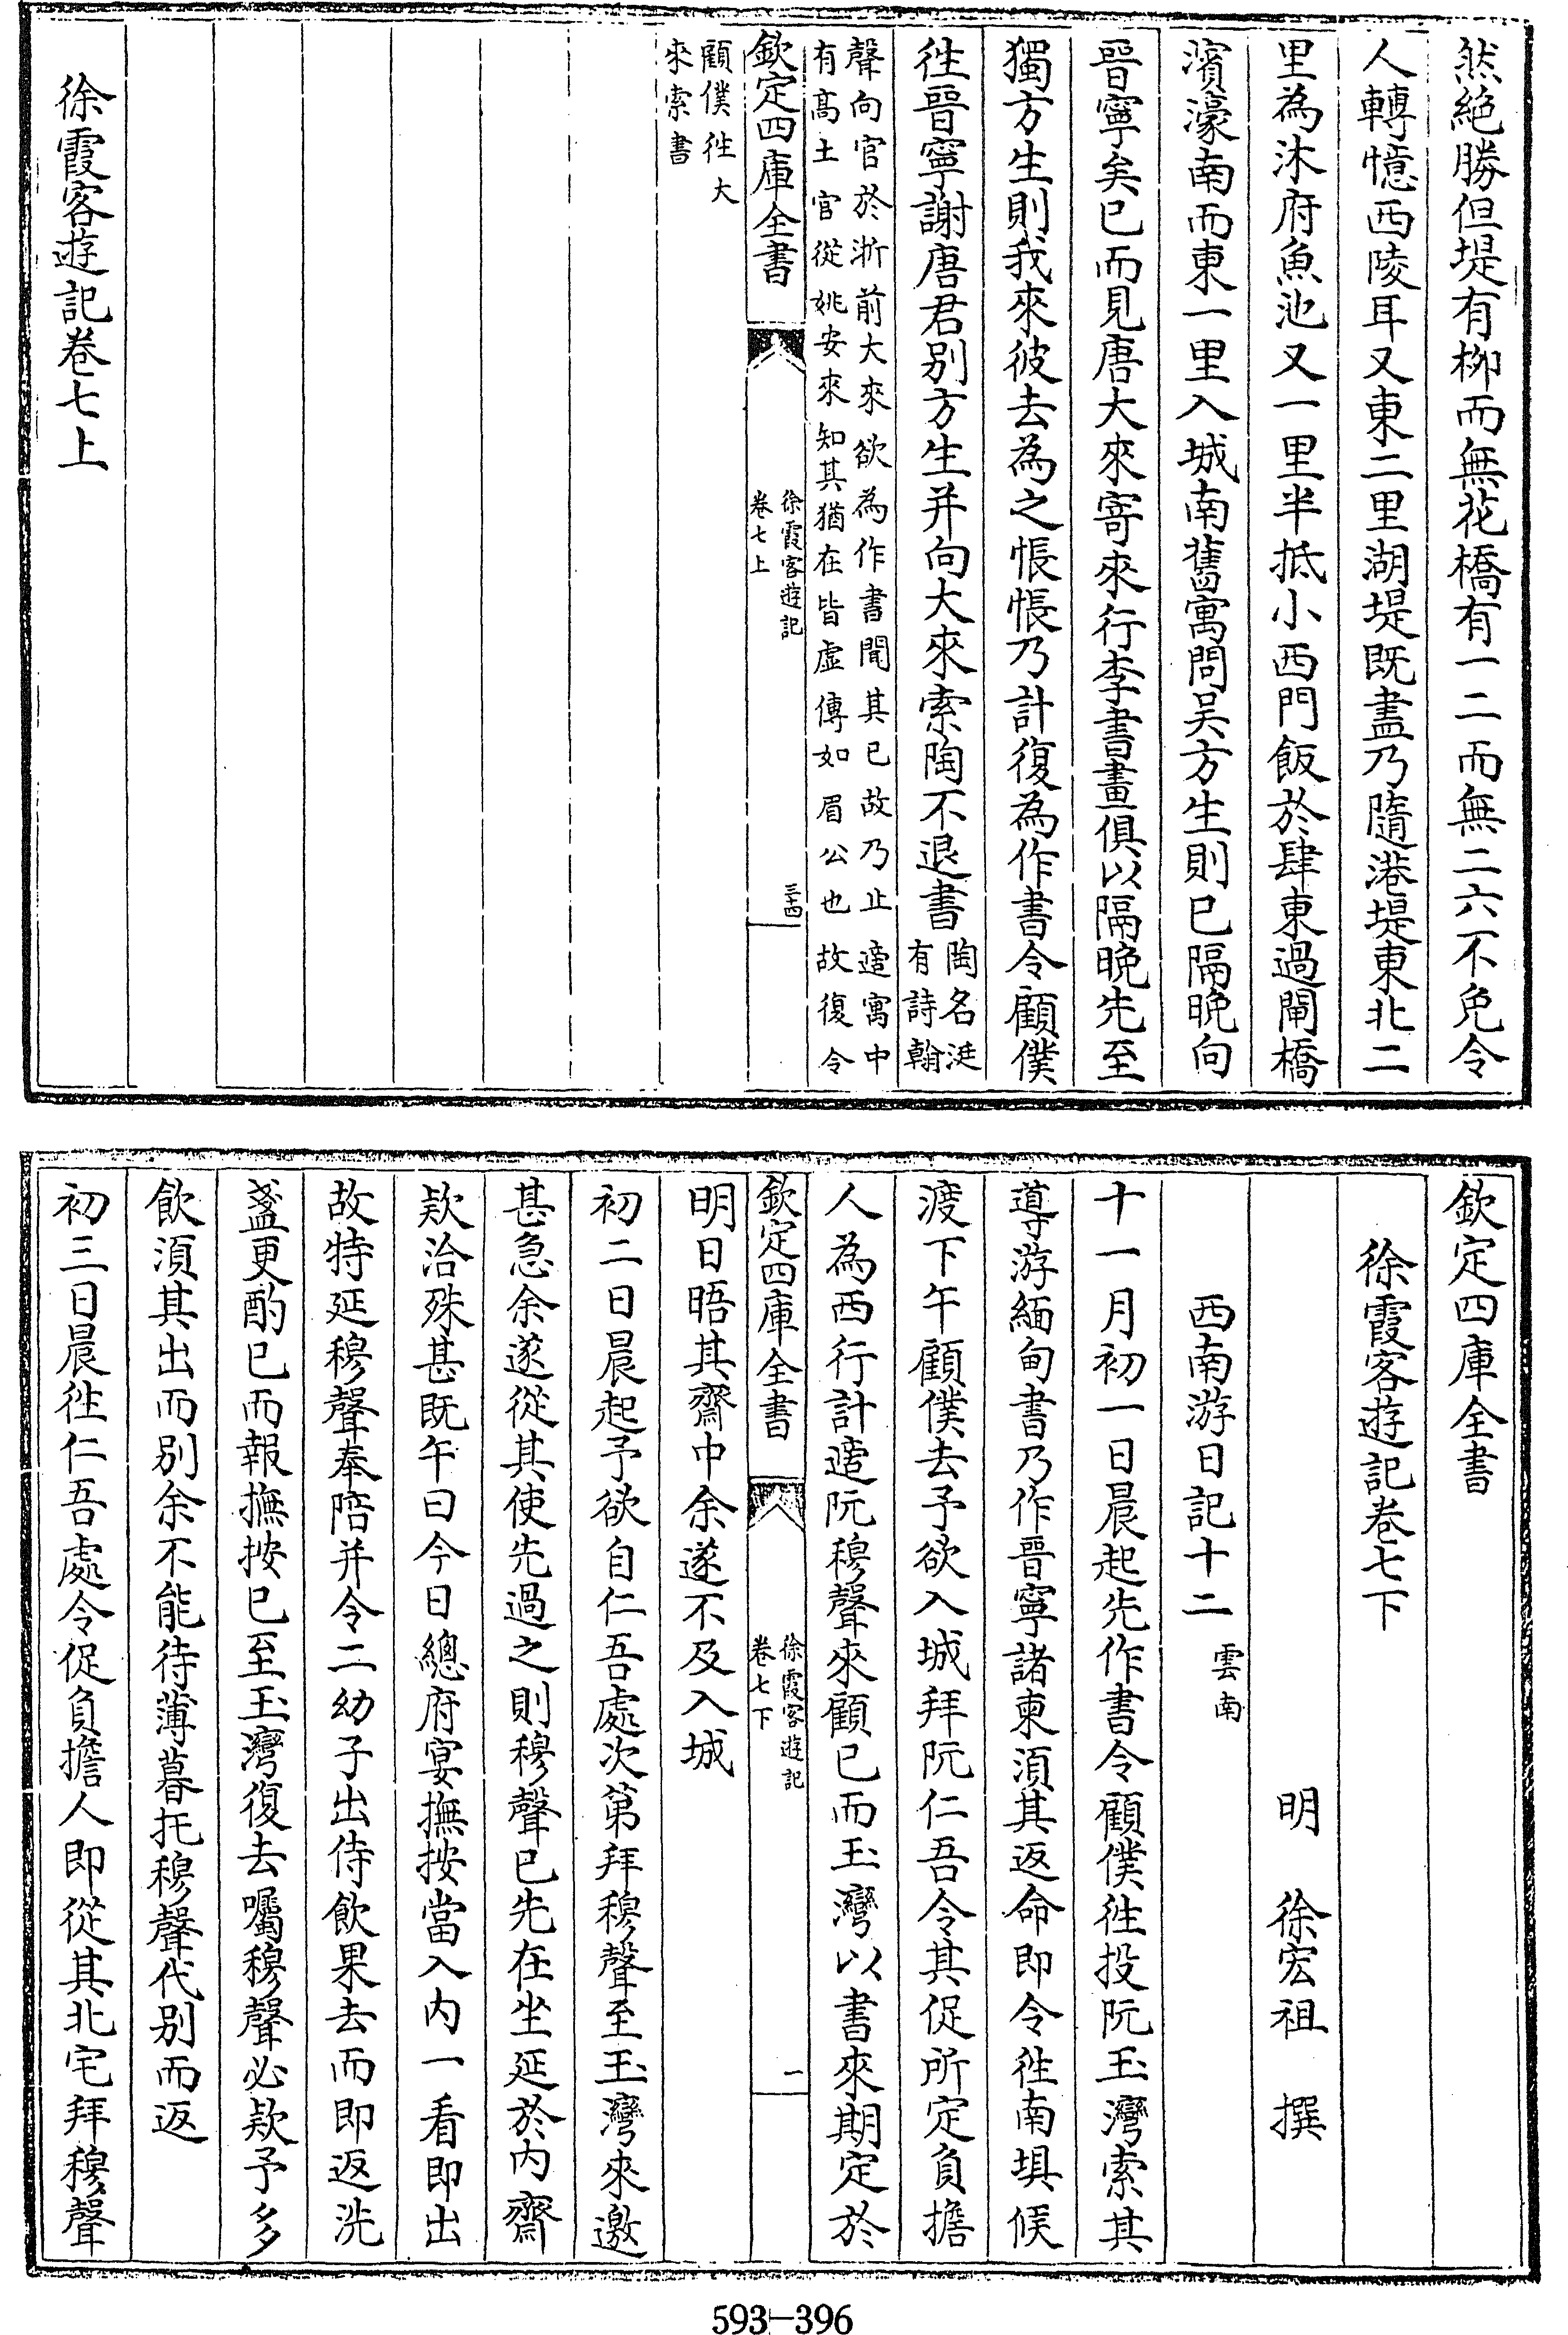 然絶勝但堤有栁而無花橋有一二而無二六不免令
人轉憶西陵耳又東二里湖堤既盡乃隨港堤東北二
里為沐府魚池又一里半抵小西門飯於肆東過閘橋
濱濠南而東一里入城南舊寓問吴方生則已隔晚向
晉寧矣已而見唐大來寄來行李書畫俱以隔晚先至
獨方生則我來彼去為之悵悵乃計復為作書令顧僕
徃晉寧謝唐君别方生并向大來索陶不退書
陶名珽
有詩翰
聲向官於浙前大來欲為作書聞其已故乃止適寓中
有高土官從姚安來知其猶在皆虚傳如眉公也故復令
欽定四庫全書
徐霞客遊記
卷七上
三十四
顧僕徃大
來索書
徐霞客遊記卷七上
欽定四庫全書
徐霞客遊記卷七下
明 徐宏祖 撰
西南游日記十二
雲南
十一月初一日晨起先作書令顧僕徃投阮玉灣索其
導游緬甸書乃作晉寧諸柬湏其返命即令徃南垻候
渡下午顧僕去予欲入城拜阮仁吾令其促所定負擔
人為西行計適阮穆聲來顧已而玉灣以書來期定於
欽定四庫全書
徐霞客遊記
卷七下
一
明日晤其齋中余遂不及入城
初二日晨起予欲自仁吾處次第拜穆聲至玉灣來邀
甚急余遂從其使先過之則穆聲已先在坐延於内齋
欵洽殊甚既午曰今日總府宴撫按當入内一看即出
故特延穆聲奉陪并令二幼子出侍飲果去而即返洗
盞更酌已而報撫按已至玉灣復去囑穆聲必欵予多
飲湏其出而别余不能待薄暮托穆聲代别而返
初三日晨徃仁吾處令促負擔人即從其北宅拜穆聲
593-396